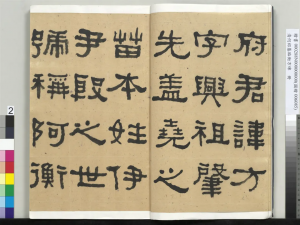 府君諱方
字興祖肇
先盖堯之
苗本姓伊
尹殷之世
號稱阿衡
2